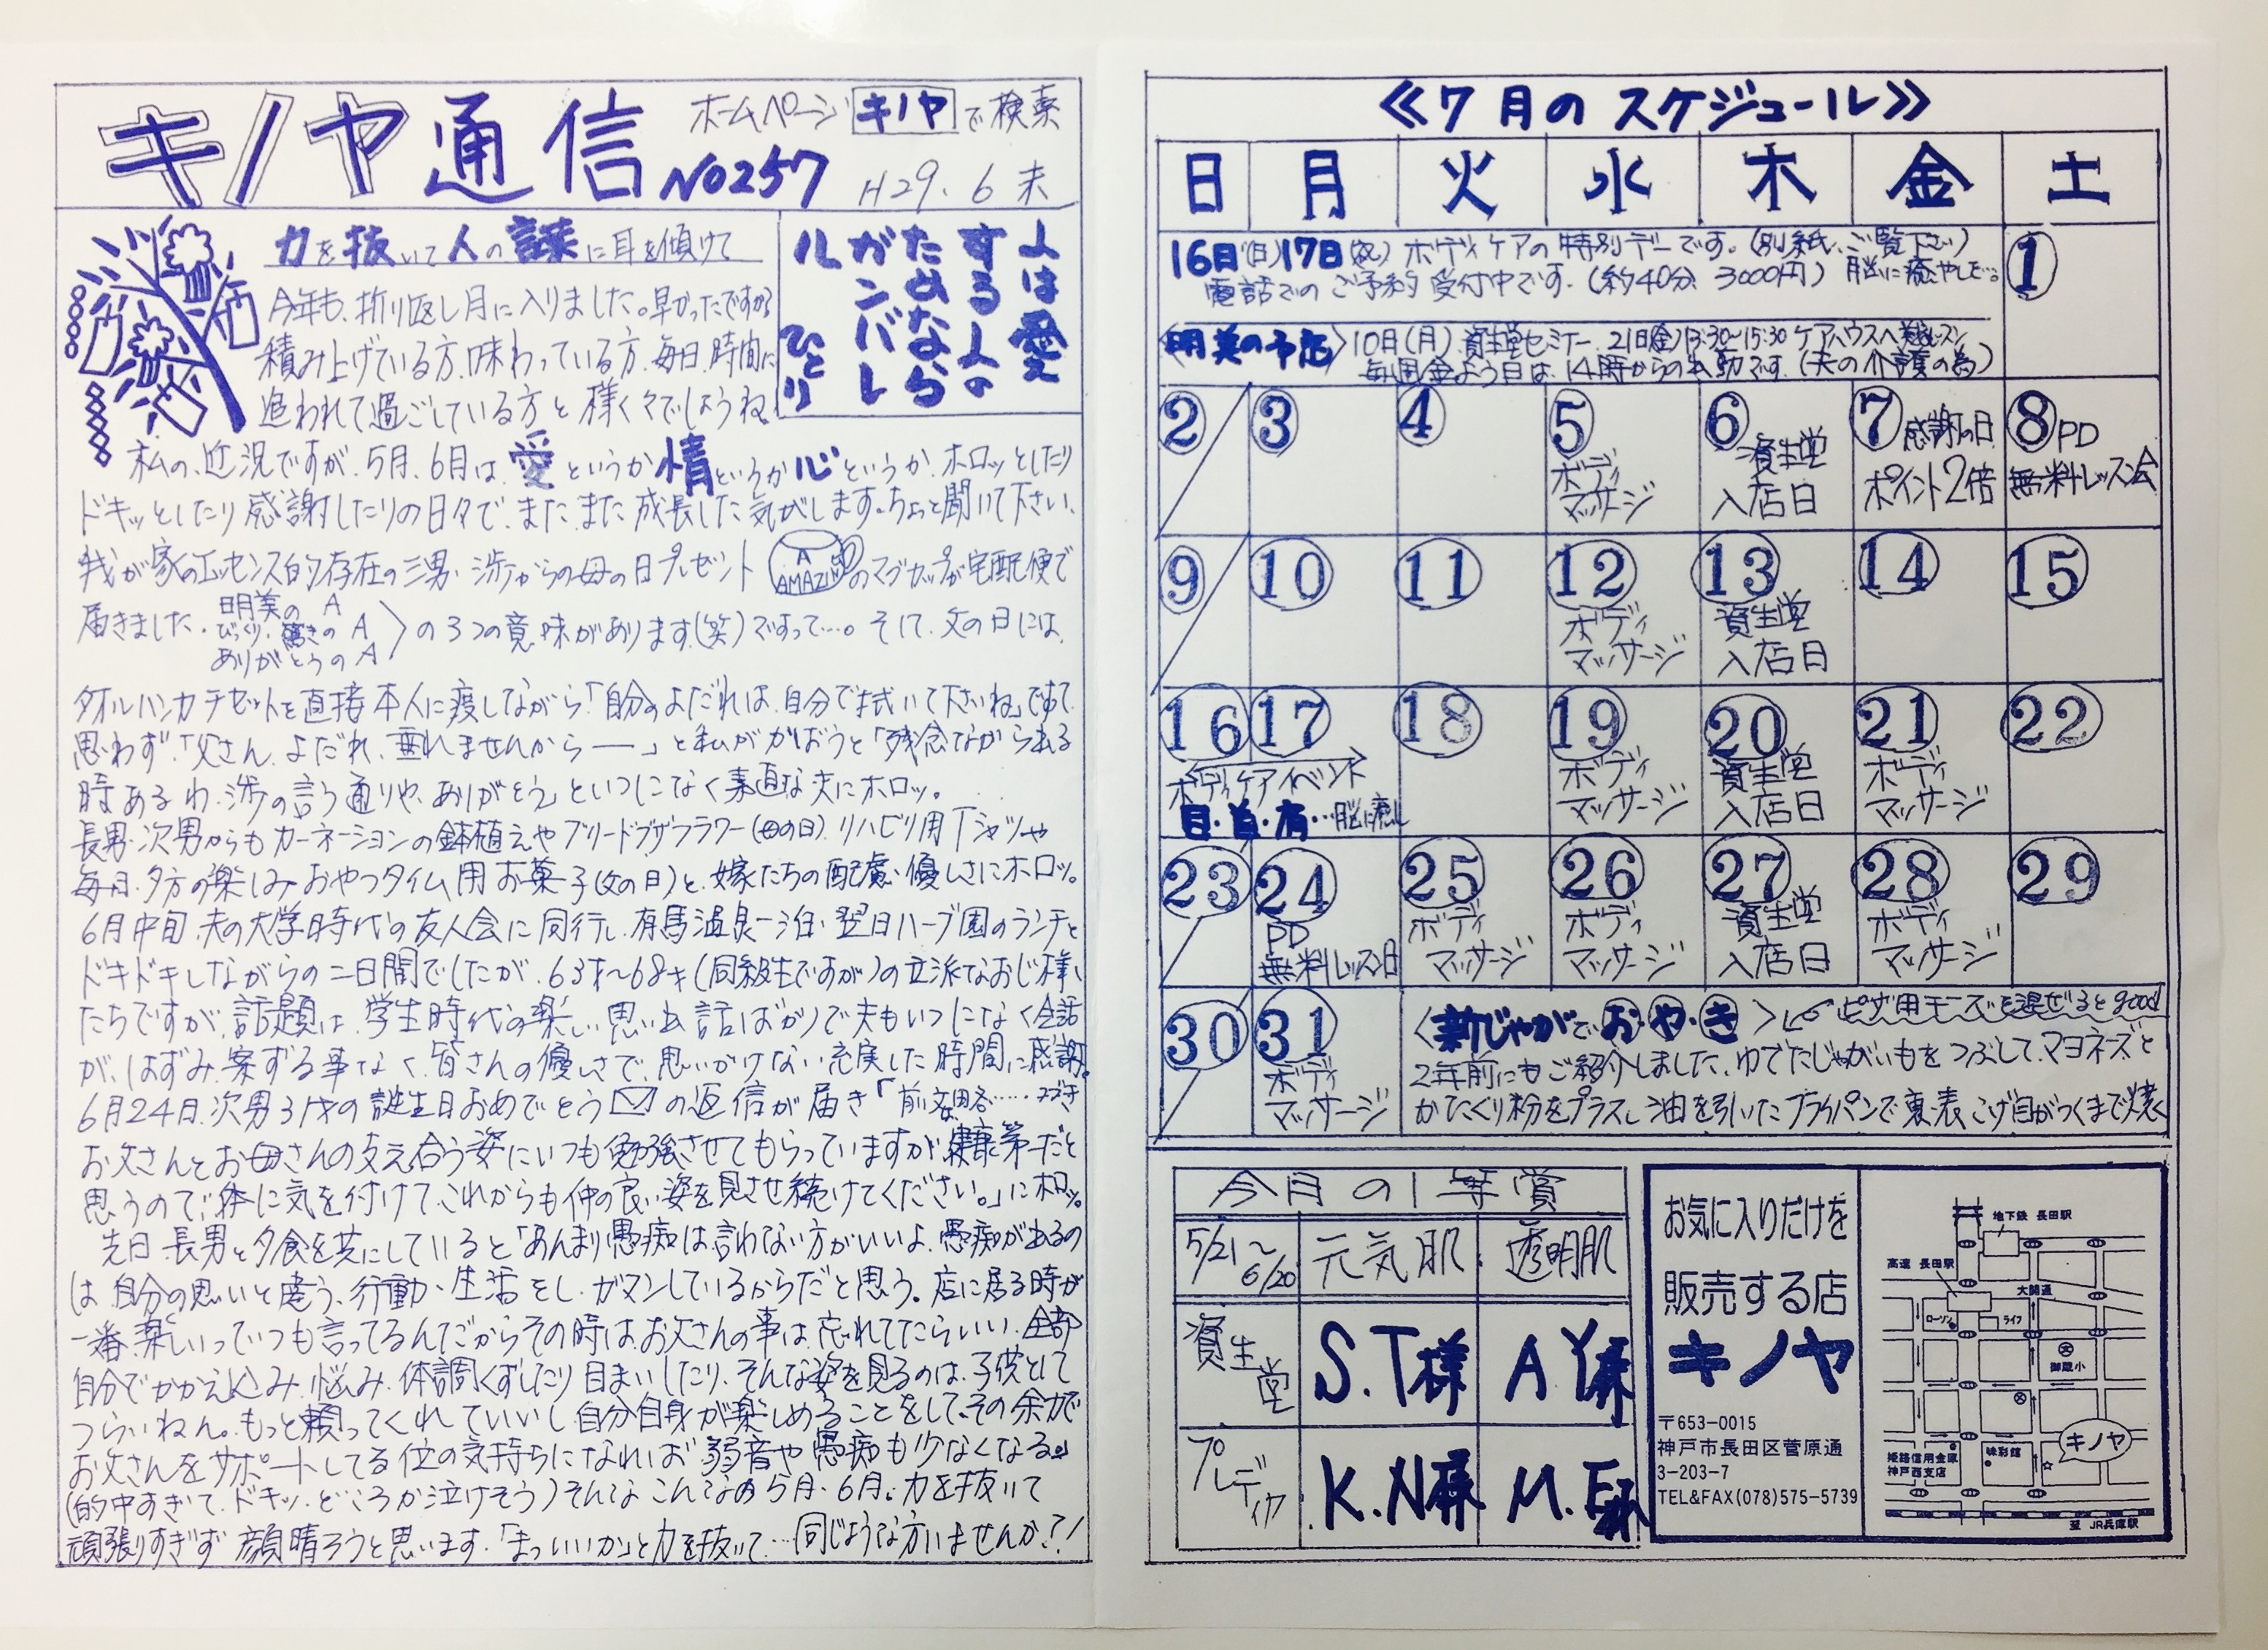 キノヤ通信
ホームページ キノヤ で検索
No257 H29.6末
力を抜いて人の言葉に耳を傾けて
人は愛
する人の
ためなら
ガンバレ
ル ひとり
今年も、折り返し月に入りました。早かったですか?
積み上げている方、味わっている方、毎日、時間に
追われて過ごしている方と様々でしょうね。
私の、近況ですが、5月、6月は、愛というか情というか心というか、ホロッとしたり
ドキッとしたり感謝したりの日々で、また、また成長した気がします。ちょっと聞いて下さい、
我が家のエッセンス的存在の三男、渉からの母の日プレゼント A AMAZING のマグカップが宅配便で
届きました。
明美のA
びっくり、驚きのA
ありがとうのA
の3つの意味があります(笑)ですって…。そして、父の日には、
タオルハンカチセットを直接本人に渡しながら「自分のよだれは、自分で拭いて下さいね」ですて、
思わず「父さん、よだれ、垂れませんからー」と私がかばおうと「残念ながらある
時あるわ、渉の言う通りや、ありがとう」といつになく素直な夫にホロッ。
長男、次男からもカーネーションの鉢植えやブリードブザフラワー(母の日)、リハビリ用Tシャツや
毎日、夕方の楽しみおやつタイム用お菓子(父の日)と、嫁たちの配慮、優しさにホロッ。
6月中旬、夫の大学時代の友人会に同行し、有馬温泉一泊、翌日ハーブ園のランチと
ドキドキしながらの二日間でしたが、63才〜68才(同級生ですが)の立派なおじ様
たちですが、話題は、学生時代の楽しい思い出話ばかりで夫もいつになく会話
が、はずみ、案ずる事なく、皆さんの優しさで、思いがけない充実した時間に感謝。
6月24日、次男31才の誕生日おめでとう✉の返信が届き「前文田各……
お父さんとお母さんの支え合う姿にいつも勉強させてもらっていますが、健康第一だと
思うので、体に気を付けて、これからも仲の良い姿を見させ続けてください。」にホロッ。
先日、長男と夕食を共にしていると「あんまり愚痴は、言わない方がいいよ、愚痴があるの
は、自分の思いと違う、行動、生活をし、ガマンしているからだと思う。店に居る時が
一番、楽しいっていつも言ってるんだからその時は、お父さんの事は、忘れてたらいい、全部
自分でかかえ込み、悩み、体調くずしたり、目まいしたり、そんな姿を見るのは、子供として
つらいねん。もっと頼ってくれていいし、自分自身が楽しめることをして、その余力で
お父さんをサポートしてる位の気持ちになれば弱音や愚痴も少なくなる。」
(的中すぎて、ドキッ、どころか泣けそう)そんな、こんなの5月、6月。力を抜いて
頑張りすぎず 顔晴ろうと思います。「まっいいか」と力を抜いて…同じような方いませんか?!
≪7月のスケジュール≫
日 月 火 水 木 金 土
16日(日)17日(祝)ボディケアの特別デーです。(別紙、ご覧下さい)
電話でのご予約受付中です。(約40分、3000円)脳に癒やしを。
①
〈明美の予定〉10日(月)資生堂セミナー、21日(金)13:30〜15:30 ケアハウスへ美容レッスン
毎週金よう日は、14時からの出勤です。(夫の介護の為)
2 3 4 5 6 7感謝の日 8PD
ボディ マッサージ 資生堂 入店日 ポイント2倍 無料レッスン会
9 10 11 12 13 14 15
ボディ マッサージ 資生堂 入店日
16 17 18 19 20 21 22
ボディケアイベント ボディ マッサージ 資生堂 入店日 ボディ マッサージ
目・首・肩…脳に癒し
23 24 25 26 27 28 29
PD 無料レッスン日 ボディ マッサージ ボディ マッサージ 資生堂 入店日 ボディ マッサージ
30 31
ボディ マッサージ
〈新じゃがで、お・や・き〉 ピザ用チーズを混ぜるとgood
2年前にもご紹介しました、ゆでたじゃがいもをつぶして、マヨネーズと
かたくり粉をプラスし油を引いたフライパンで裏、表、こげ目がつくまで焼く
今月の1等賞
5/21〜6/20 元気肌 透明肌
資生堂 S.T様 A.Y様
プレディア K.N様 M.E様
お気に入りだけを
販売する店
キノヤ
〒653-0015
神戸市長田区菅原通
3-203-7
TEL&FAX(078)575-5739
地下鉄 長田駅
高速 長田駅
大開通
ローソン
ライフ
御蔵小
姫路信用金庫
神戸西支店
味彩館
キノヤ
至 JR兵庫駅